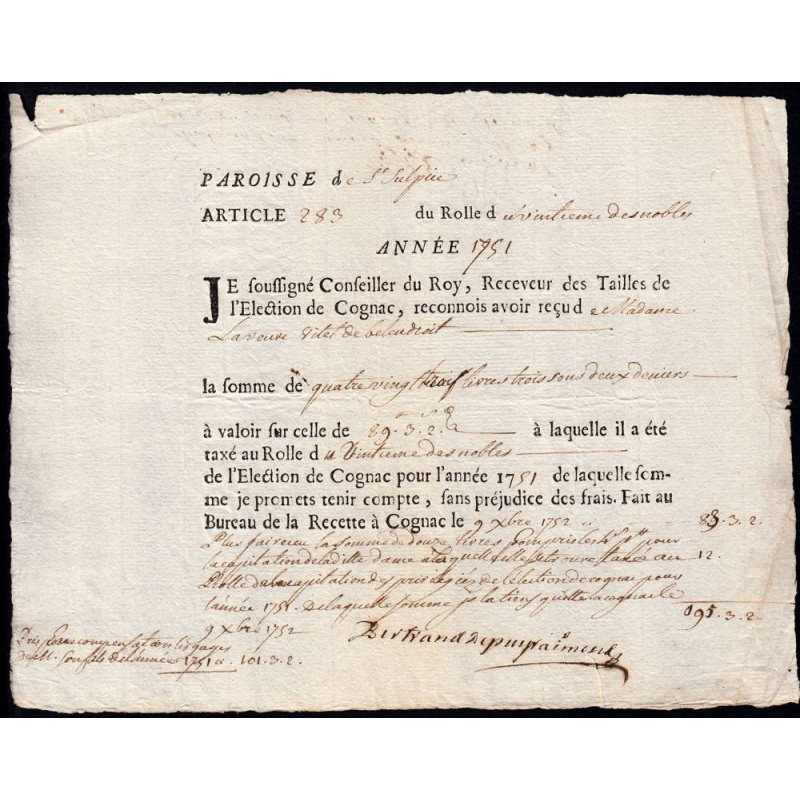 PAROISSE de St Sulpice
ARTICLE 283 du Rolle du vintieme des nobles
ANNÉE 1751
JE soussigné Conseiller du Roy, Receveur des Tailles de
l'Election de Cognac, reconnois avoir reçu de Madame
La veuve
la somme de quatre vingt trois livres trois sous deux deniers
à valoir sur celle de 89.3.2 à laquelle il a été
taxé au Rolle du Vintieme des nobles
de l'Election de Cognac pour l'année 1751 de laquelle som-
me je promets tenir compte, sans préjudice des frais. Fait au
Bureau de la Recette à Cognac le 9 xbre 1752 83.3.2.
Plus fai receu la somme de douze livres compris les pour
la capitation de la ditte dame a laquelle elle se trouve taxée au 12.
Rolle de la capitation des privilegiés de l'election de cognac pour
l'année 1751. de laquelle somme je la tiens quitte a cognac le
9 xbre 1752 95.3.2.
Pris compensation les gages
de M. son fils de l'année 1751 101.3.2.
Bertrand de puyraimond